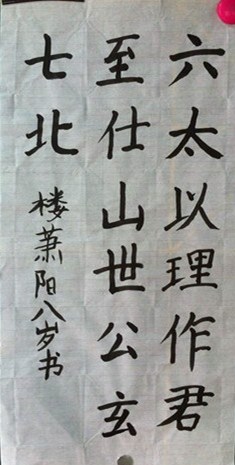 六太以理作君
至仕山世公玄
七北
楼萧阳八岁书